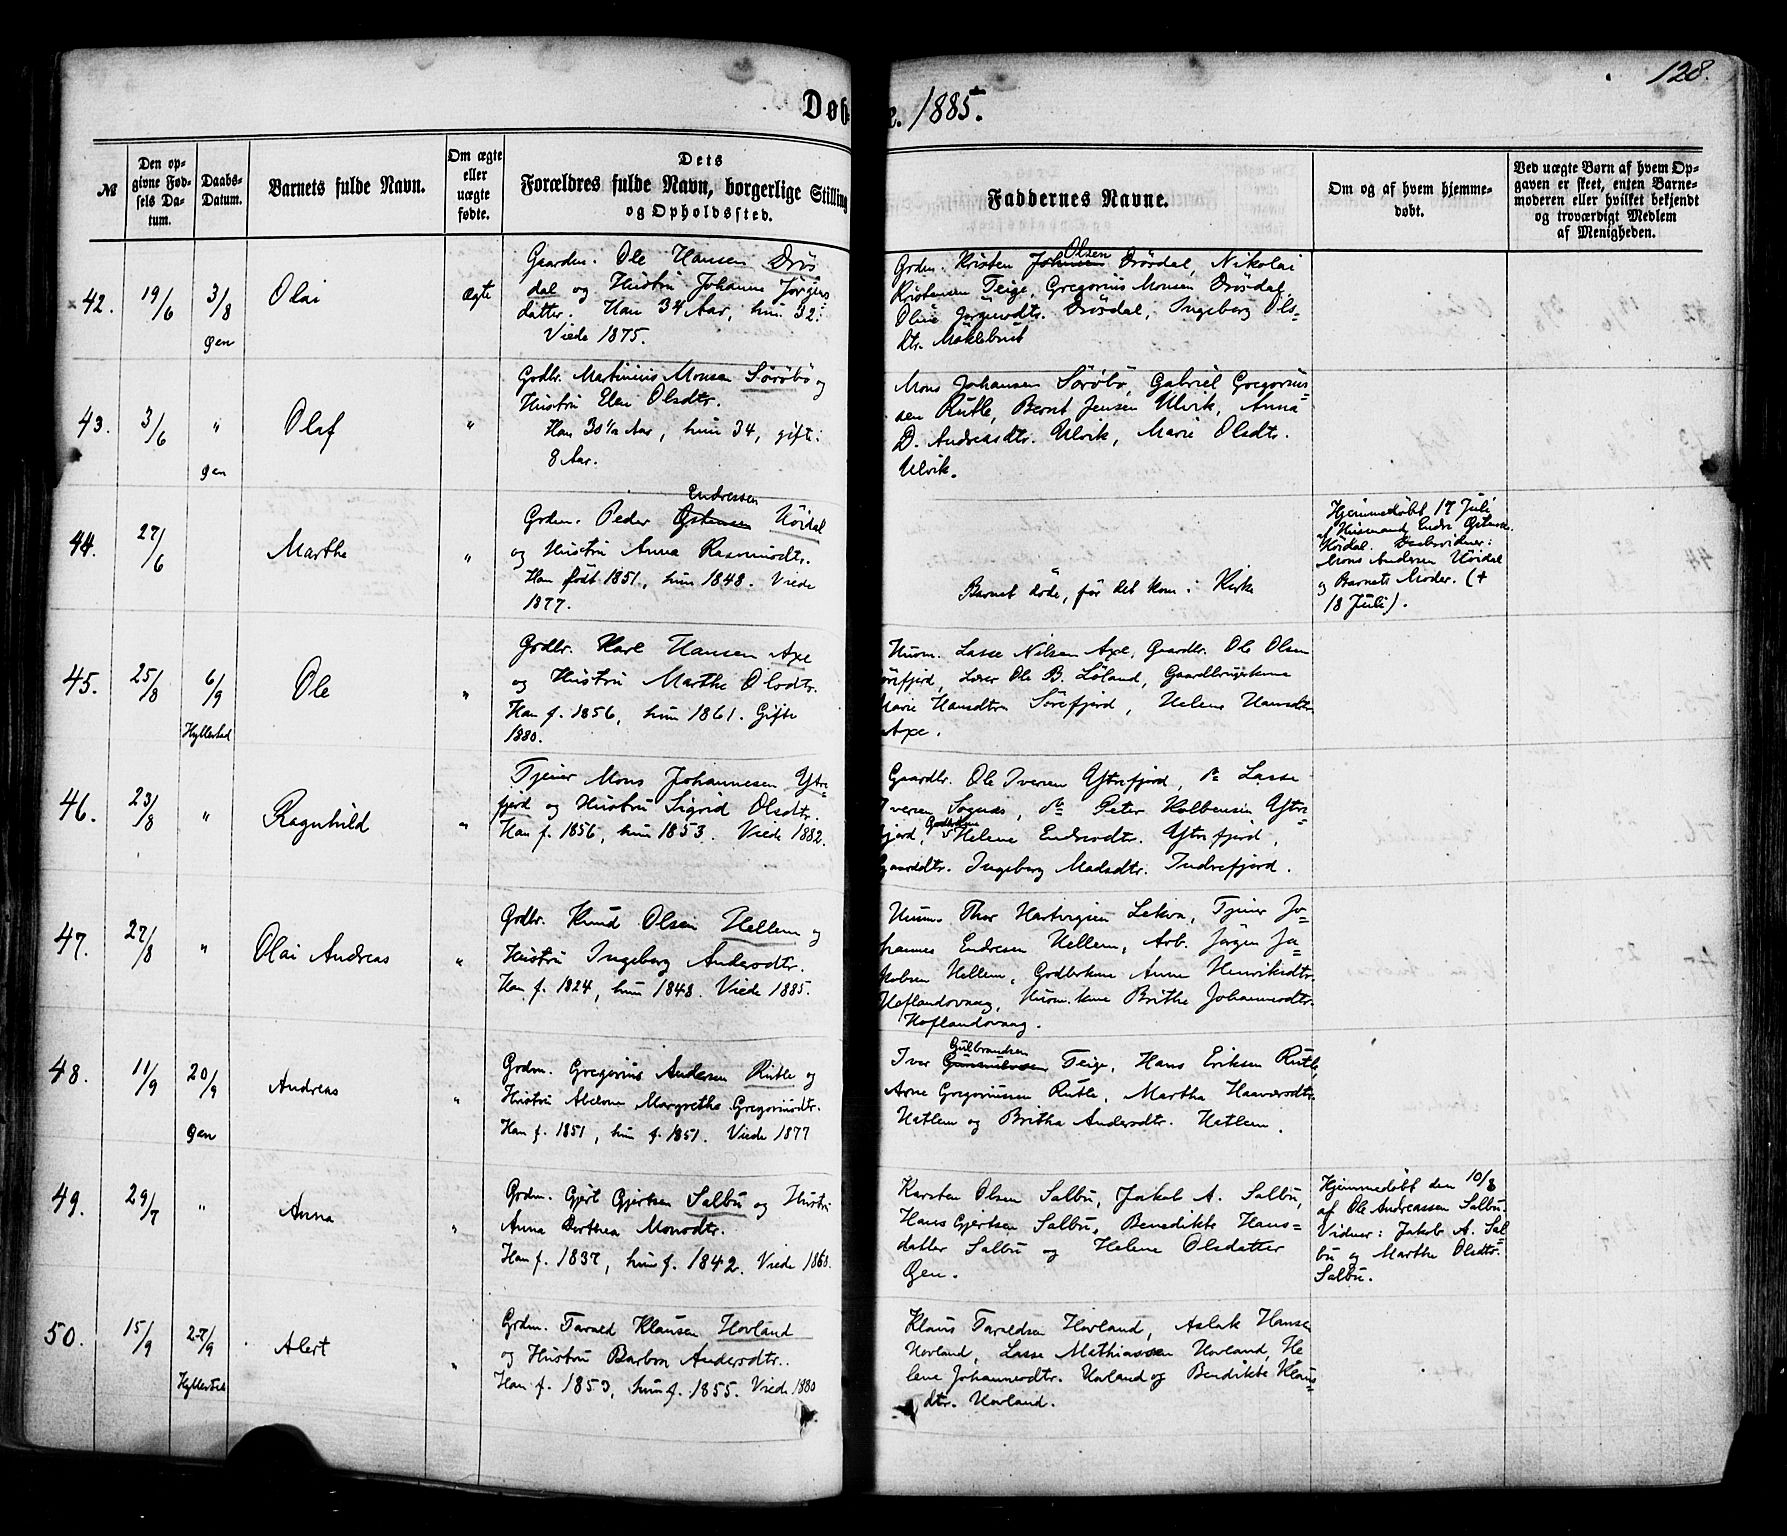 128.
Døb
e. 1885.
№
Den op-
givne Fød-
sels Da-
tum.
Daabs-
Datum.
Barnets fulde Navn.
Om ægte
eller
uægte
fødte.
Dets
Forældres fulde Navn, borgerlige Stilling
og Opholdssted.
Faddernes Navne.
Om og af hvem hjemme-
døbt.
Ved uægte Børn af hvem Op-
gaven er skeet, enten Barne-
moderen eller hvilket bekjendt
og troværdigt Medlem
af Menigheden.
42.
19/6
3/8
Øen
Olai
Ægte
Gaardm. Ole Hansen Dris
dal og Hustru Johanne Jørgens
datter. Han 34 Aar, hun 32.
Viede 1875.
Grdm. Kristen Johnsen Olsen Drösdal, Nikolai
Kristensen Teige, Gregorius Monsen Drösdal,
Oline Jørgensdtr. Drösdal, Ingeborg Ols=
dtr. Möklebust
43.
3/6
"
Øen
Olaf
"
Grdbr. Martinius Monsen Sörebö og
Hustru Elen Olsdtr.
Han 30 1/2 Aar, hun 34, gift:
8 Aar.
Mons Johansen Sörebö, Gabriel Gregorius=
sen Rutle, Bernt Jensen Ulvik, Anna
D. Andreasdtr. Ulvik, Marie Olsdtr.
Ulvik.
44.
27/6
Marthe
"
Endressen
Grdm. Peder Østensen Höidal
og Hustru Anna Rasmusdtr.
Han födt 1851, hun 1848. Viede
1877.
Barnet døde, før det kom i Kirke
Hjemmedøbt 17 Juli
af Husmand Endre
Höidal. Daabsvidner:
Mons Andersen Höidal
og Barnets Moder. (+
18 Juli).
45.
25/8
6/9
Hyllestad
Ole
"
Grdbr. Karl Hansen Axe
og Hustru Marthe Olsdtr.
Han f. 1856, hun 1861. Gifte
1880.
Husm. Lasse Nilsen Axe, Gaardbr. Ole Olsen
Sörefjord, Lærer Ole B. Löland, Gaardbrugerkone
Marie Hansdtr. Sörefjord, Helene Hansdtr.
Axe.
46.
23/8
"
Ragnhild
"
Tjener Mons Johannesen Ytre=
fjord og Hustru Sigrid Olsdtr.
Han f. 1856, hun 1853. Viede 1882.
Gaardbr. Ole Iversen Ytrefjord, do Lasse
Iversen Sognæs, do Peter Kolbensen Ytre
fjord, Helene Endresdtr. Ytrefjord,
Gaarddtr. Ingeborg Madsdtr. Indrefjord.
47.
27/8
"
Olai Andreas
"
Grdbr. Knud Olsen Hellem og
Hustru Ingeborg Andersdtr.
Han f. 1824, hun 1848. Viede 1885.
Husm. Thor Hartvigsen Lekva, Tjener Jo=
hannes Endresen Hellem, Arb. Jørgen Ja=
kobsen Hellem, Grdbrkone Anne Henriksdtr.
Høflandsvaag, Husm.kone Brithe Johannesdtr.
Høflandsvaag.
48.
11/9
20/9
Øen
Andreas
"
Grdm. Gregorius Andersen Rutle og
Hustru Abelone Margrethe Gregoriusdtr.
Han f. 1851, hun f. 1851. Viede 1877
Gulbrandsen
Iver Teige, Hans Eriksen Rutle,
Arne Gregoriussen Rutle, Martha Haaversdtr.
Hatlem og Britha Andersdtr. Hatlem.
49.
29/7
"
Anna
"
Grdm. Gjert Gjertsen Salbu og Hustru
Anna Dorthea Monsdtr.
Han f. 1837, hun f. 1842. Viede 1860.
Karsten Olsen Salbu, Jakob A. Salbu,
Hans Gjertsen Salbu, Benedikte Hans=
datter Salbu og Helene Olsdatter
Øen.
Hjemmedøbt den 10/8
af Ole Andreassen Salbu.
Vidner: Jakob A. Sal=
bu og Marthe Olsdtr.
Salbu.
50.
15/9
27/9
Hyllestad
Alert
"
Grdm. Tarald Klausen Hovland
og Hustru Barbra Andersdtr.
Han f. 1853, hun f. 1855. Viede 1880
Klaus Taraldsen Hovland, Aslak Hansen
Hovland, Lasse Mathiassen Hovland, He
lene Johannesdtr. Hovland og Bendikte Klaus=
dtr. Hovland.